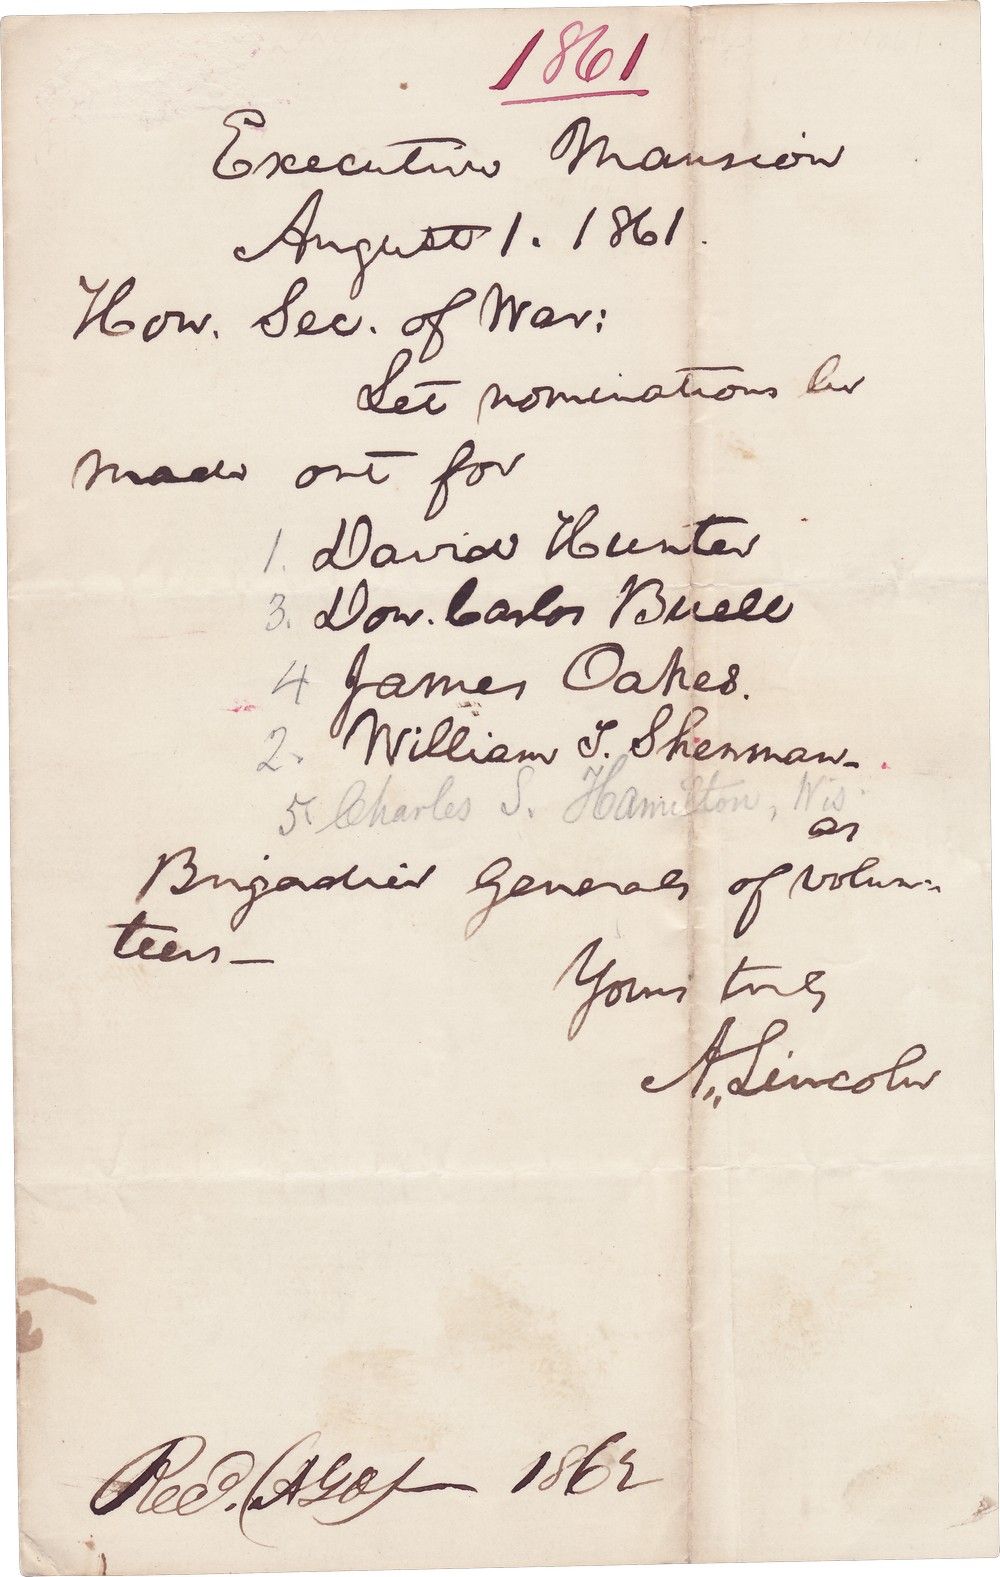 1861
Executive Mansion
August 1. 1861.
Hon. Sec. of War:
Let nominations be
made out for
1. David Hunter
3. Don. Carlos Buell
4 James Oakes.
2. William T. Sherman-
5. Charles S. Hamilton, Wis.
as
Brigadier Generals of volun-
teers-
Yours truly
A. Lincoln
Recd. (AGO) 1862